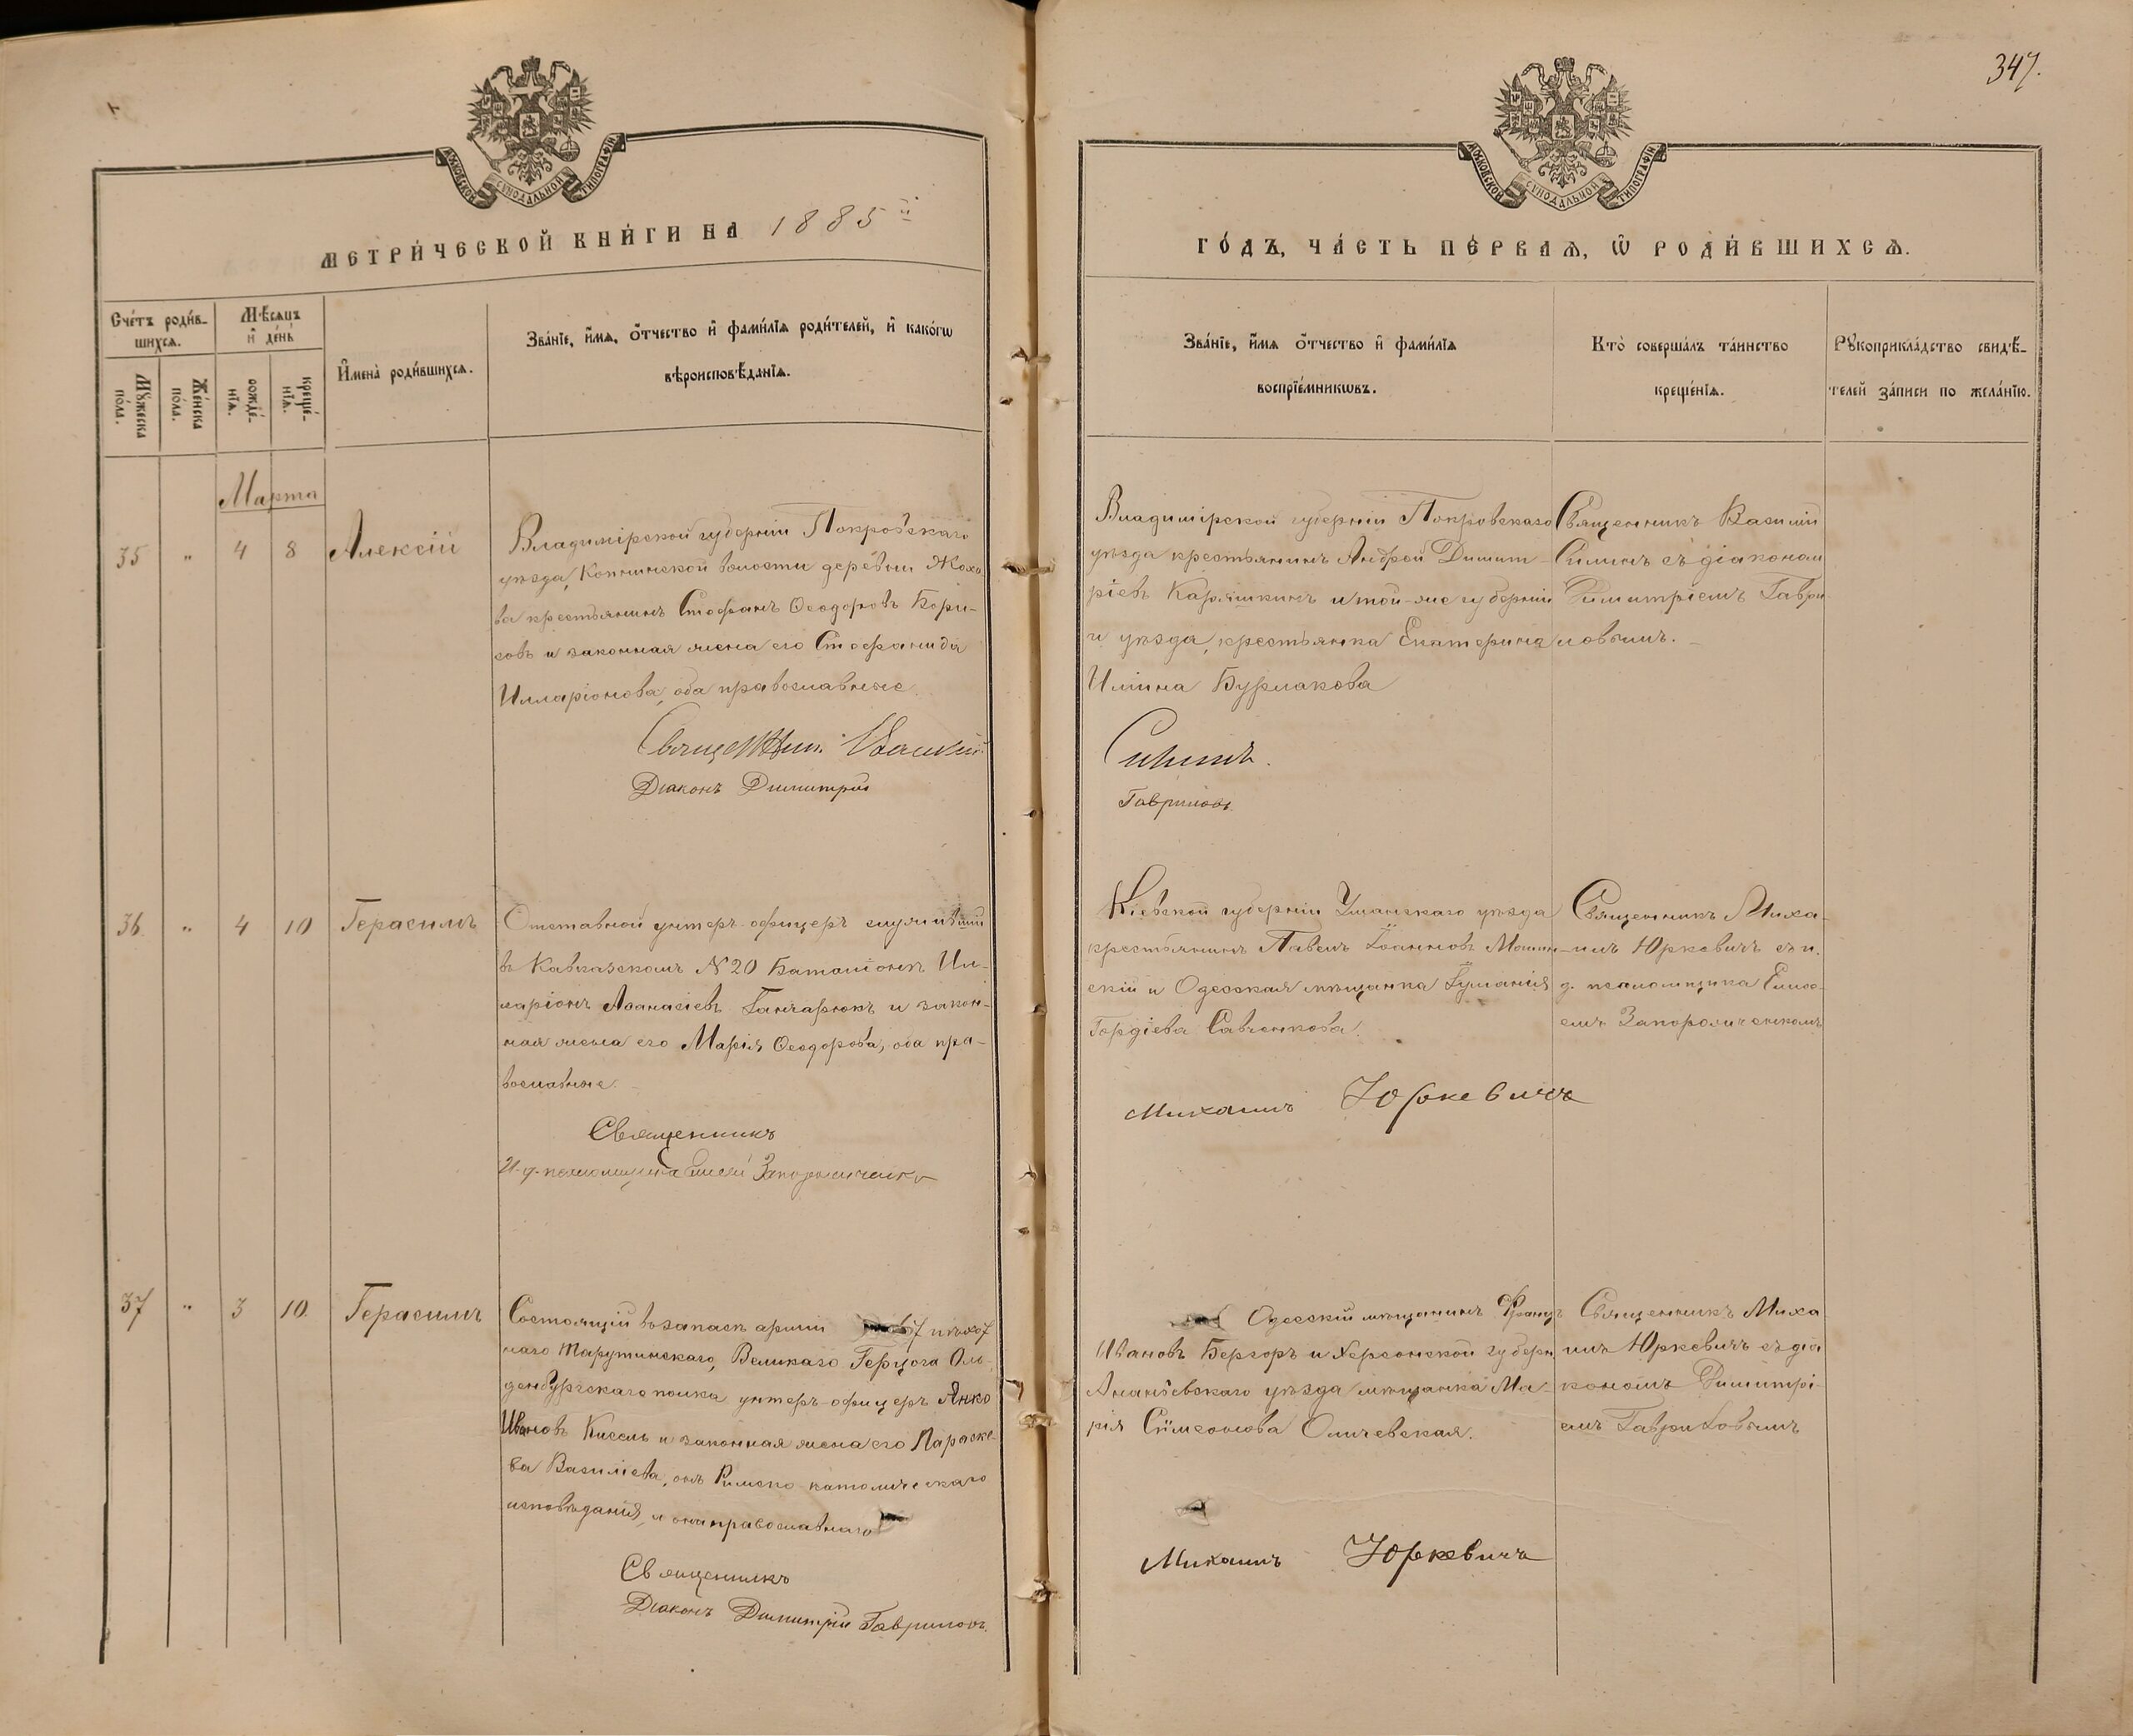 347.
МОСКОВСКОЙ СѴНОДАЛЬНОЙ ТИПОГРАФІИ
МОСКОВСКОЙ СѴНОДАЛЬНОЙ ТИПОГРАФІИ
МЕТРИ́ЧЕСКОЙ КНИ́ГИ НА 1885й
ГО́ДЪ, ЧА́СТЬ ПЕ́РВАѦ, Ѡ҆ РОДИ́ВШИХСѦ.
Сче́тъ роди́в-
шихсѧ.
Мꙋ́жеска
по́ла.
Же́нска
по́ла.
Мѣ́сѧцъ
и҆ де́нь
рожде́-
нїѧ.
креще́-
нїѧ.
И҆мена̀ роди́вшихсѧ.
Зва́нїе, и҆́мѧ, ѻ҆́тчество и҆ фами́лїѧ роди́телей, и҆ како́гѡ
вѣроисповѣ́данїѧ.
Зва́нїе, и҆́мѧ ѻ҆́тчество и҆ фами́лїѧ
воспрїе́мникѡвъ.
Кто̀ соверша́лъ та́инство
креще́нїѧ.
Рꙋкоприкла́дство свидѣ́-
телей за́писи по жела́нїю.
Марта
35 " 4 8 Алексій
Владимірской губерніи Покровскаго
уѣзда, Копнинской волости деревни Жохо
ва крестьянинъ Стефанъ Ѳеодоровъ Бори-
совъ и законная жена его Стефанида
Илларіонова, оба православные.
Священникъ Василій
Діаконъ Димитрій
Владимірской губерніи Покровскаго
уѣзда крестьянинъ Андрей Димит-
ріевъ Карякинъ и той-же губерніи
и уѣзда, крестьянка Екатерина
Ильина Бурлакова
Силинъ.
Гавриловъ
Священникъ Василій
Силинъ съ діакономъ
Димитріемъ Гаври
ловымъ.
36 " 4 10 Герасимъ
Отставной унтеръ-офицеръ служившій
въ Кавказскомъ №20 Баталіонѣ Ил-
ларіонъ Аѳанасіевъ Ганчарюкъ и закон-
ная жена его Марія Ѳеодорова, оба пра-
вославные.
Священникъ
И. д. псаломщика Елисей Запорожченко
Кіевской губерніи Уманскаго уѣзда
крестьянинъ Павелъ Іоанновъ
скій и Одесская мѣщанка Іуліанія
Гордіева Савченкова.
Михаилъ Юркевичъ
Священникъ Миха-
илъ Юркевичъ съ и.
д. псаломщика Елисе-
емъ Запорожченкомъ
37 " 3 10 Герасимъ
Состоящій въ запасѣ арміи 67 пѣхот
наго Тарутинскаго, Великаго Герцога Оль-
денбургскаго полка унтеръ-офицеръ Янко
Ивановъ Кисель и законная жена его Параске-
ва Василіева, онъ Римско католическаго
исповѣданія, а она православнаго
Священникъ
Діаконъ Димитрій Гавриловъ.
Одесскій мѣщанинъ Францъ
Ивановъ Бергеръ и Херсонской губерн
Ананьевскаго уѣзда мѣщанка Ма-
рія Сѵмеонова Ольчевская.
Михаилъ Юркевичъ
Священникъ Миха
илъ Юркевичъ съ діа
кономъ Димитрі-
емъ Гавриловымъ